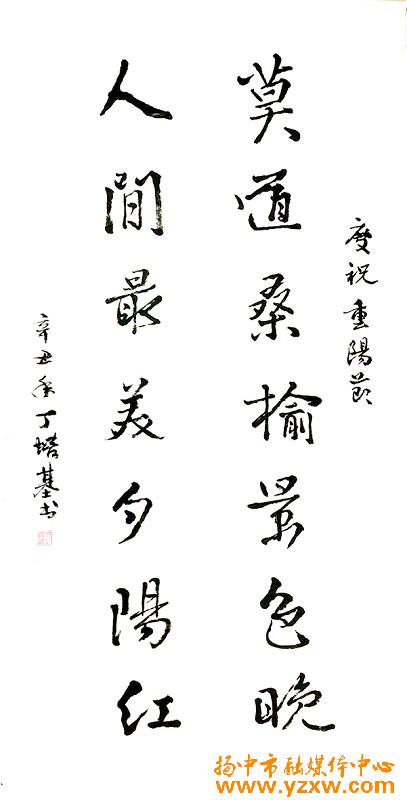 慶祝重陽節
莫道桑榆景色晚
人間最美夕陽红
辛丑年丁增基书
扬中市融媒体中心
www.yzxw.com